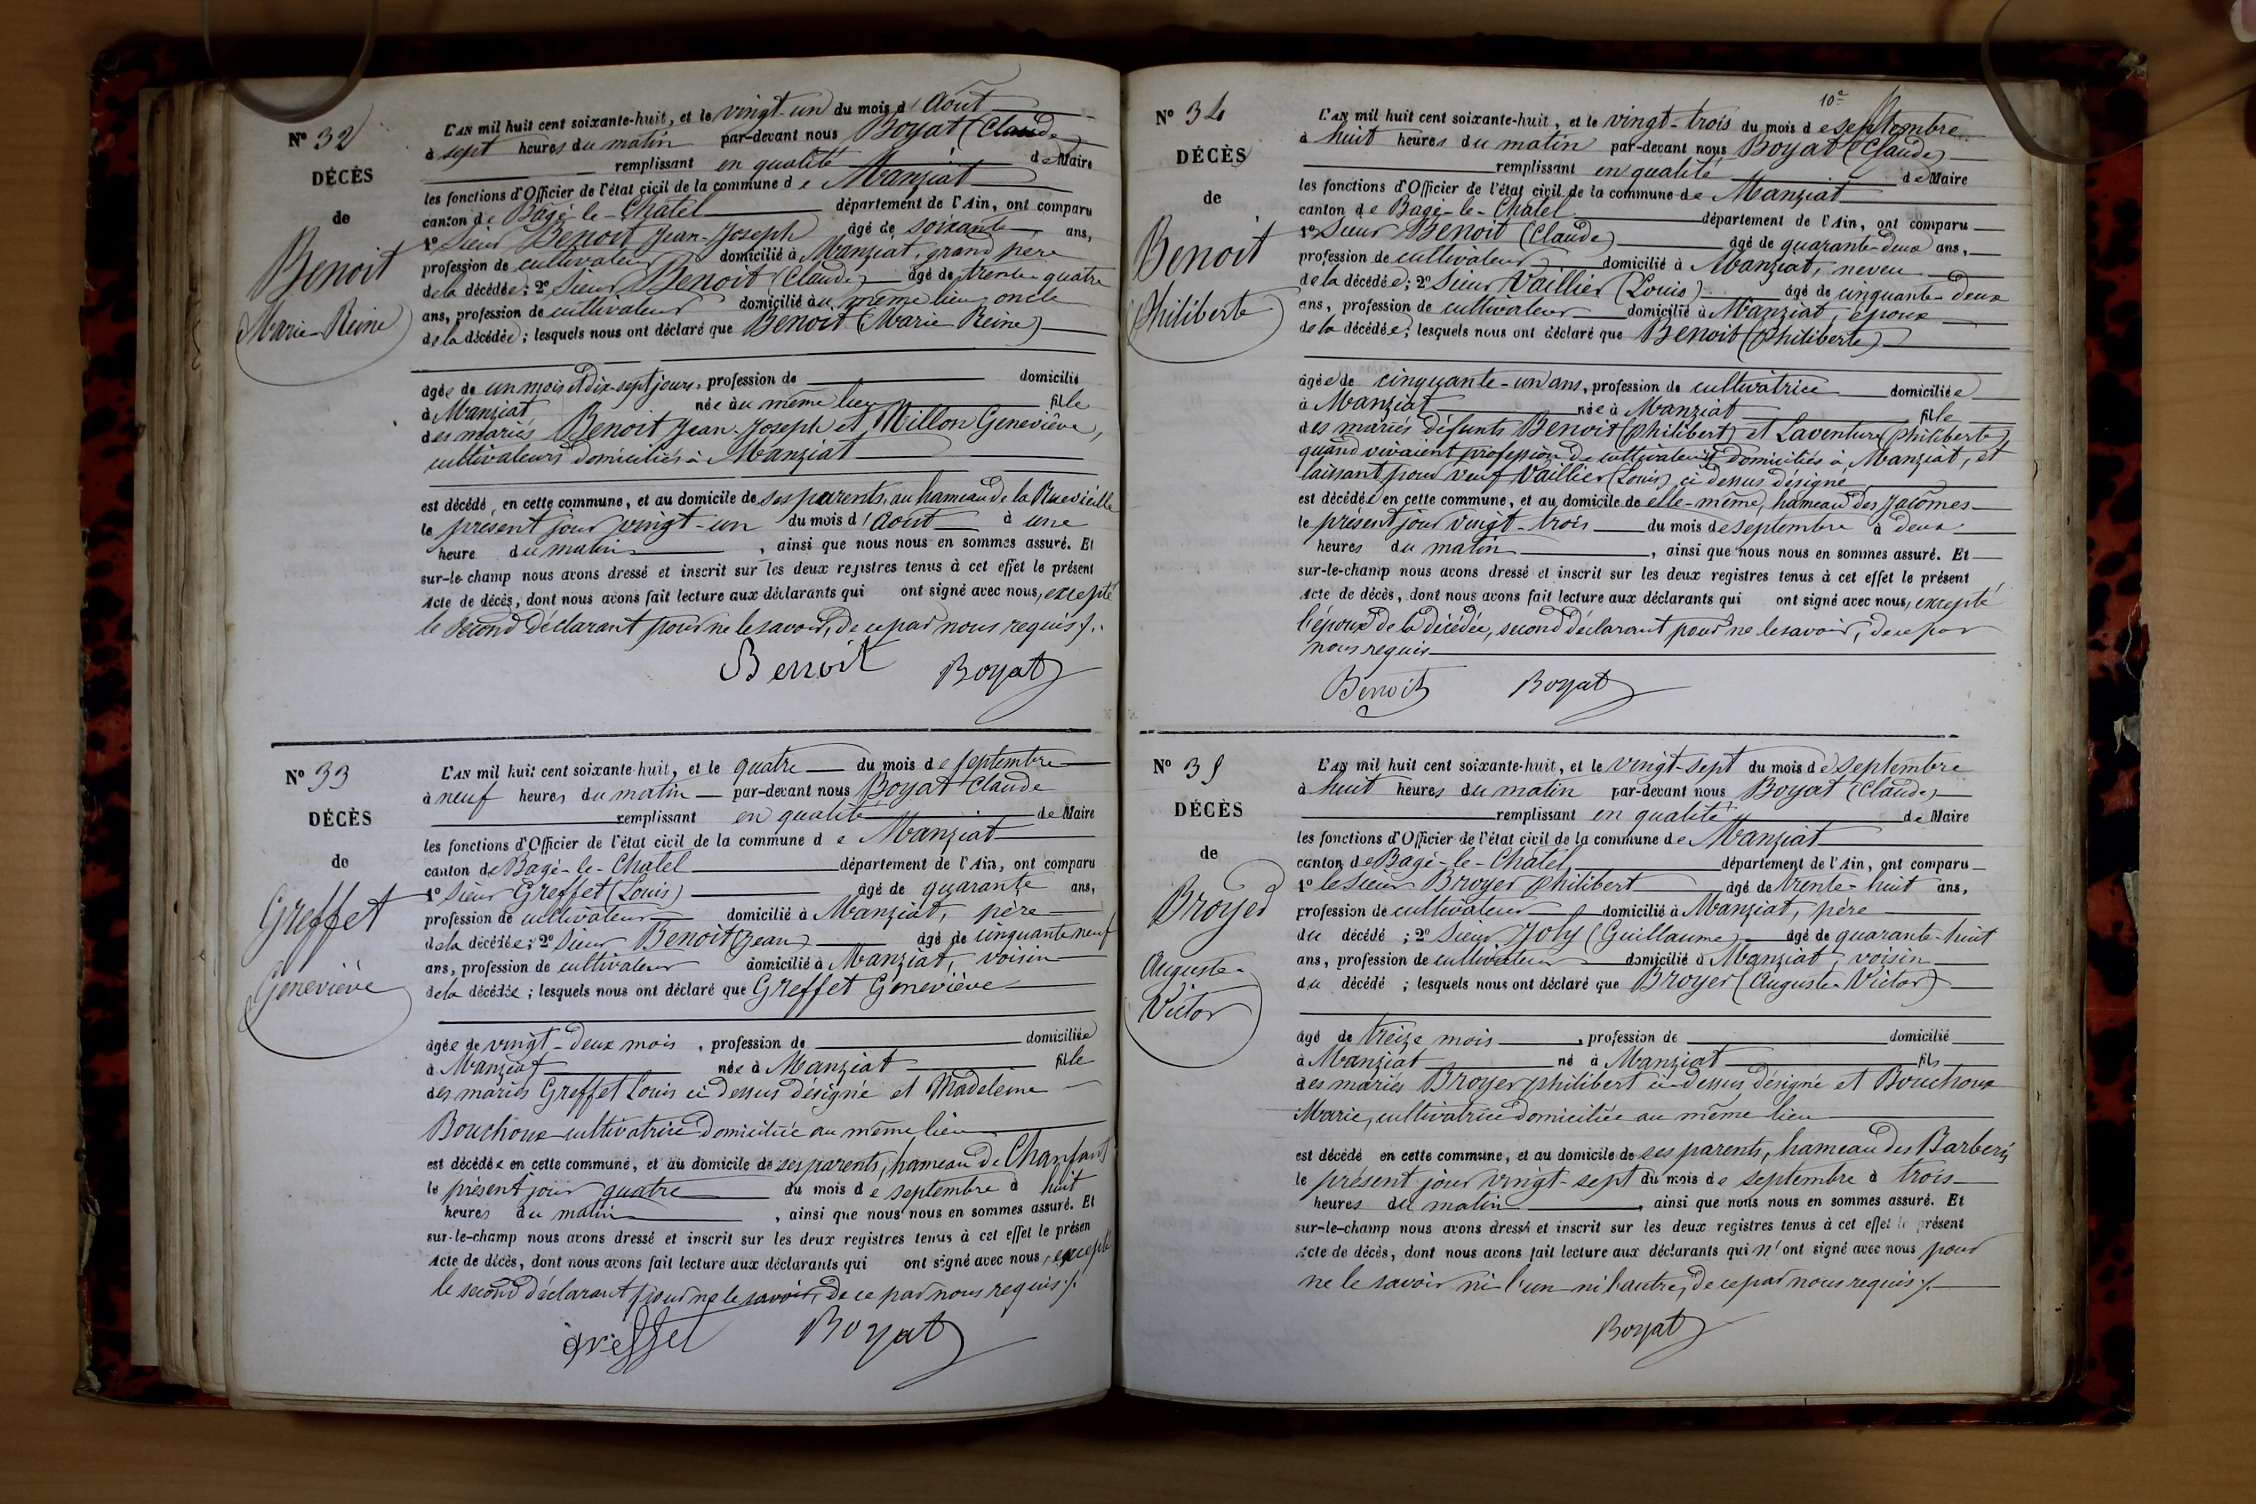 N° 32
DÉCÈS
de
Benoit
Marie-Reine
L'AN mil huit cent soixante-huit, et le vingt-un du mois d'Août
à sept heures du matin par-devant nous Boyat (Claude)
remplissant en qualité de Maire
les fonctions d'Officier de l'état civil de la commune de Manziat
canton de Bâgé-le-Chatel département de l'Ain, ont comparu
1° Sieur Benoit Jean-Joseph âgé de soixante ans,
profession de cultivateur domicilié à Manziat, grand père
de la décédée; 2° Sieur Benoit (Claude) âgé de trente-quatre
ans, profession de cultivateur domicilié au même lieu, oncle
de la décédée; lesquels nous ont déclaré que Benoit (Marie Reine)
âgée de un mois et dix-sept jours, profession de domicilié
à Manziat née au même lieu fille
des mariés Benoit Jean-Joseph et Millon Geneviève,
cultivateurs domiciliés à Manziat
est décédé, en cette commune, et au domicile de ses parents, au hameau de la Rue vieille
le présent jour vingt-un du mois d'Août à une
heure du matin, ainsi que nous nous en sommes assuré. Et
sur-le-champ nous avons dressé et inscrit sur les deux registres tenus à cet effet le présent
Acte de décès, dont nous avons fait lecture aux déclarants qui ont signé avec nous, excepté
le second déclarant pour ne le savoir, de ce par nous requis.
Benoit Boyat
N° 33
DÉCÈS
de
Greffet
Geneviève
L'AN mil huit cent soixante-huit, et le quatre du mois de septembre
à neuf heures du matin par-devant nous Boyat Claude
remplissant en qualité de Maire
les fonctions d'Officier de l'état civil de la commune de Manziat
canton de Bagé-le-Chatel département de l'Ain, ont comparu
1° Sieur Greffet (Louis) âgé de quarante ans,
profession de cultivateur domicilié à Manziat, père
de la décédée; 2° Sieur Benoit (Jean) âgé de cinquante neuf
ans, profession de cultivateur domicilié à Manziat, voisin
de la décédée; lesquels nous ont déclaré que Greffet Geneviève
âgée de vingt-deux mois, profession de domiciliée
à Manziat née à Manziat fille
des mariés Greffet Louis ci-dessus désigné et Madeleine
Bouchoux cultivatrice domiciliée au même lieu
est décédée en cette commune, et au domicile de ses parents, hameau de Chanfant
le présent jour quatre du mois de septembre à huit
heures du matin, ainsi que nous nous en sommes assuré. Et
sur-le-champ nous avons dressé et inscrit sur les deux registres tenus à cet effet le présen
Acte de décès, dont nous avons fait lecture aux déclarants qui ont signé avec nous, excepté
le second déclarant pour ne le savoir, de ce par nous requis.
greffet Boyat
10e
N° 34
DÉCÈS
de
Benoit
Philiberte
L'AN mil huit cent soixante-huit, et le vingt-trois du mois de septembre
à huit heures du matin par-devant nous Boyat (Claude)
remplissant en qualité de Maire
les fonctions d'Officier de l'état civil de la commune de Manziat
canton de Bagé-le-Chatel département de l'Ain, ont comparu
1° Sieur Benoit (Claude) âgé de quarante-deux ans,
profession de cultivateur domicilié à Manziat, neveu
de la décédée; 2° Sieur Vaillier (Louis) âgé de cinquante-deux
ans, profession de cultivateur domicilié à Manziat, époux
de la décédée; lesquels nous ont déclaré que Benoit (Philiberte)
âgée de cinquante-un ans, profession de cultivatrice domiciliée
à Manziat née à Manziat fille
des mariés défunts Benoit (philibert) et Laventure (Philiberte)
quand vivaient profession de cultivateurs domiciliés à Manziat, et
laissant pour veuf Vaillier (Louis) ci dessus désigné
est décédée en cette commune, et au domicile de elle-même, hameau des Jacômes
le présent jour vingt-trois du mois de septembre à deux
heures du matin, ainsi que nous nous en sommes assuré. Et
sur-le-champ nous avons dressé et inscrit sur les deux registres tenus à cet effet le présent
Acte de décès, dont nous avons fait lecture aux déclarants qui ont signé avec nous, excepté
l'époux de la décédée, second déclarant pour ne le savoir, de ce par
nous requis
Benoit Boyat
N° 35
DÉCÈS
de
Broyer
Auguste-
Victor
L'AN mil huit cent soixante-huit, et le vingt-sept du mois de septembre
à huit heures du matin par-devant nous Boyat (Claude)
remplissant en qualité de Maire
les fonctions d'Officier de l'état civil de la commune de Manziat
canton de Bagé-le-Chatel, département de l'Ain, ont comparu
1° le sieur Broyer philibert âgé de trente-huit ans,
profession de cultivateur domicilié à Manziat, père
du décédé; 2° Sieur Joly (Guillaume) âgé de quarante-huit
ans, profession de cultivateur domicilié à Manziat, voisin
du décédé; lesquels nous ont déclaré que Broyer (Auguste-Victor)
âgé de treize mois, profession de domicilié
à Manziat né à Manziat fils
des mariés Broyer philibert ci-dessus désigné et Bouchoux
Marie, cultivatrice domiciliée au même lieu
est décédé en cette commune, et au domicile de ses parents, hameau des Barberis
le présent jour vingt-sept du mois de septembre à trois
heures du matin, ainsi que nous nous en sommes assuré. Et
sur-le-champ nous avons dressé et inscrit sur les deux registres tenus à cet effet le présent
Acte de décès, dont nous avons fait lecture aux déclarants qui n'ont signé avec nous pour
ne le savoir ni l'un ni l'autre, de ce par nous requis.
Boyat